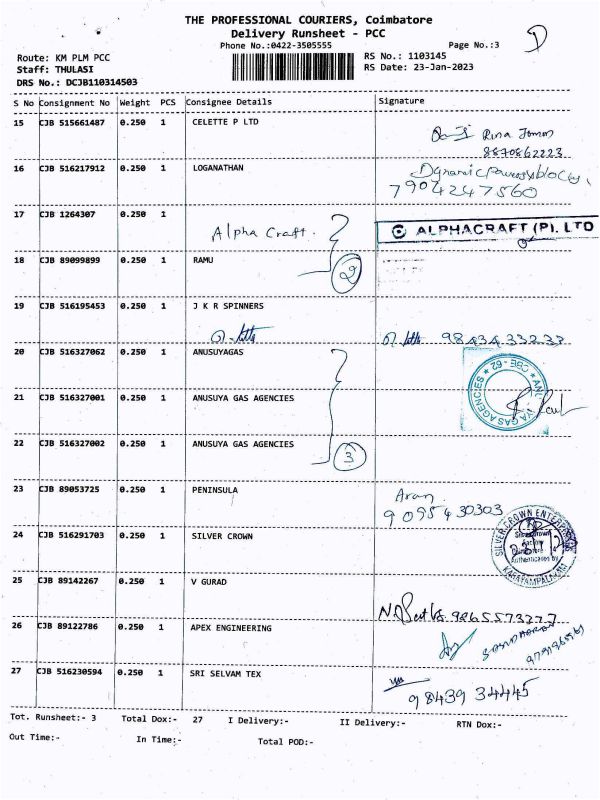 THE PROFESSIONAL COURIERS, Coimbatore
Delivery Runsheet - PCC
Phone No.:0422-3505555 Page No.:3
Route: KM PLM PCC RS No.: 1103145
Staff: THULASI RS Date: 23-Jan-2023
DRS No.: DCJB110314503
S No Consignment No Weight PCS Consignee Details Signature
15 CJB 515661487 0.250 1 CELETTE P LTD
8870862223
16 CJB 516217912 0.250 1 LOGANATHAN
7904247560
17 CJB 1264307 0.250 1
Alpha Craft. ALPHACRAFT (P). LTD
18 CJB 89099899 0.250 1 RAMU
2
19 CJB 516195453 0.250 1 J K R SPINNERS
98434 33233
20 CJB 516327062 0.250 1 ANUSUYAGAS
CBE-62
21 CJB 516327001 0.250 1 ANUSUYA GAS AGENCIES
YA GAS AGENCIES
22 CJB 516327002 0.250 1 ANUSUYA GAS AGENCIES
3
23 CJB 89053725 0.250 1 PENINSULA
9095430303
24 CJB 516291703 0.250 1 SILVER CROWN
SILVER CROWN ENTERPRISES
25 CJB 89142267 0.250 1 V GURAD
9865573277
26 CJB 89122786 0.250 1 APEX ENGINEERING
27 CJB 516230594 0.250 1 SRI SELVAM TEX
98439 34445
Tot. Runsheet:- 3 Total Dox:- 27 I Delivery:- II Delivery:- RTN Dox:-
Out Time:- In Time:- Total POD:-